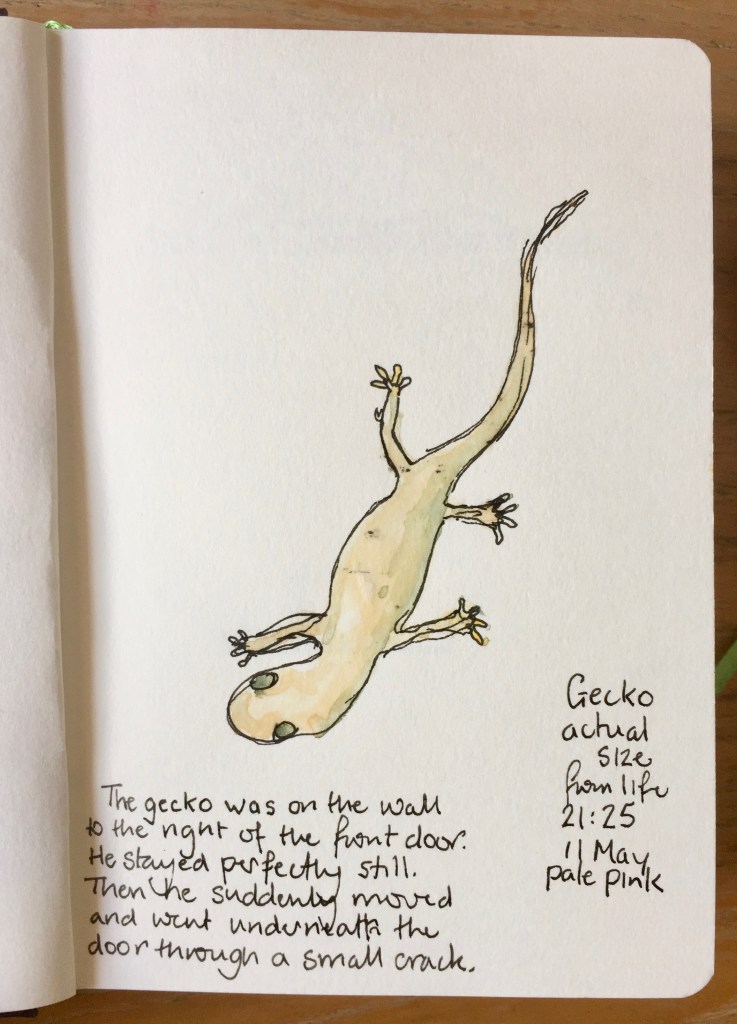 Gecko
actual
size
from life
21:25
11 May
pale pink
The gecko was on the wall
to the right of the front door.
He stayed perfectly still.
Then he suddenly moved
and went underneath the
door through a small crack.